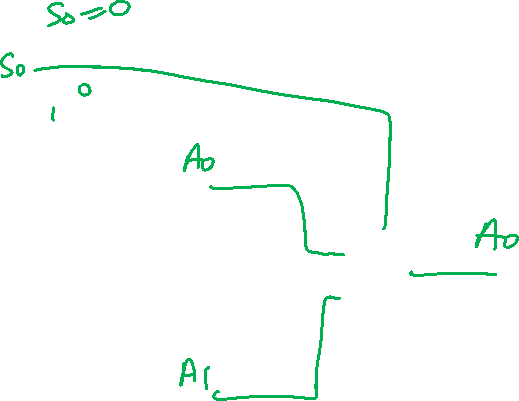 S0=0
S0
0
1
A0
A0
A1